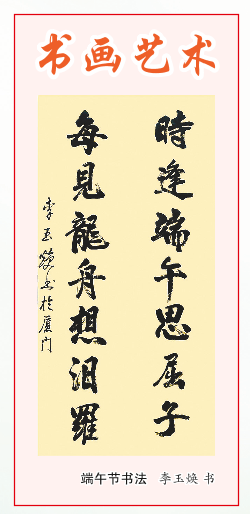 书画艺术
時逢端午思屈子
每見龍舟想汨羅
李玉焕书於厦门
端午节书法 李玉焕 书